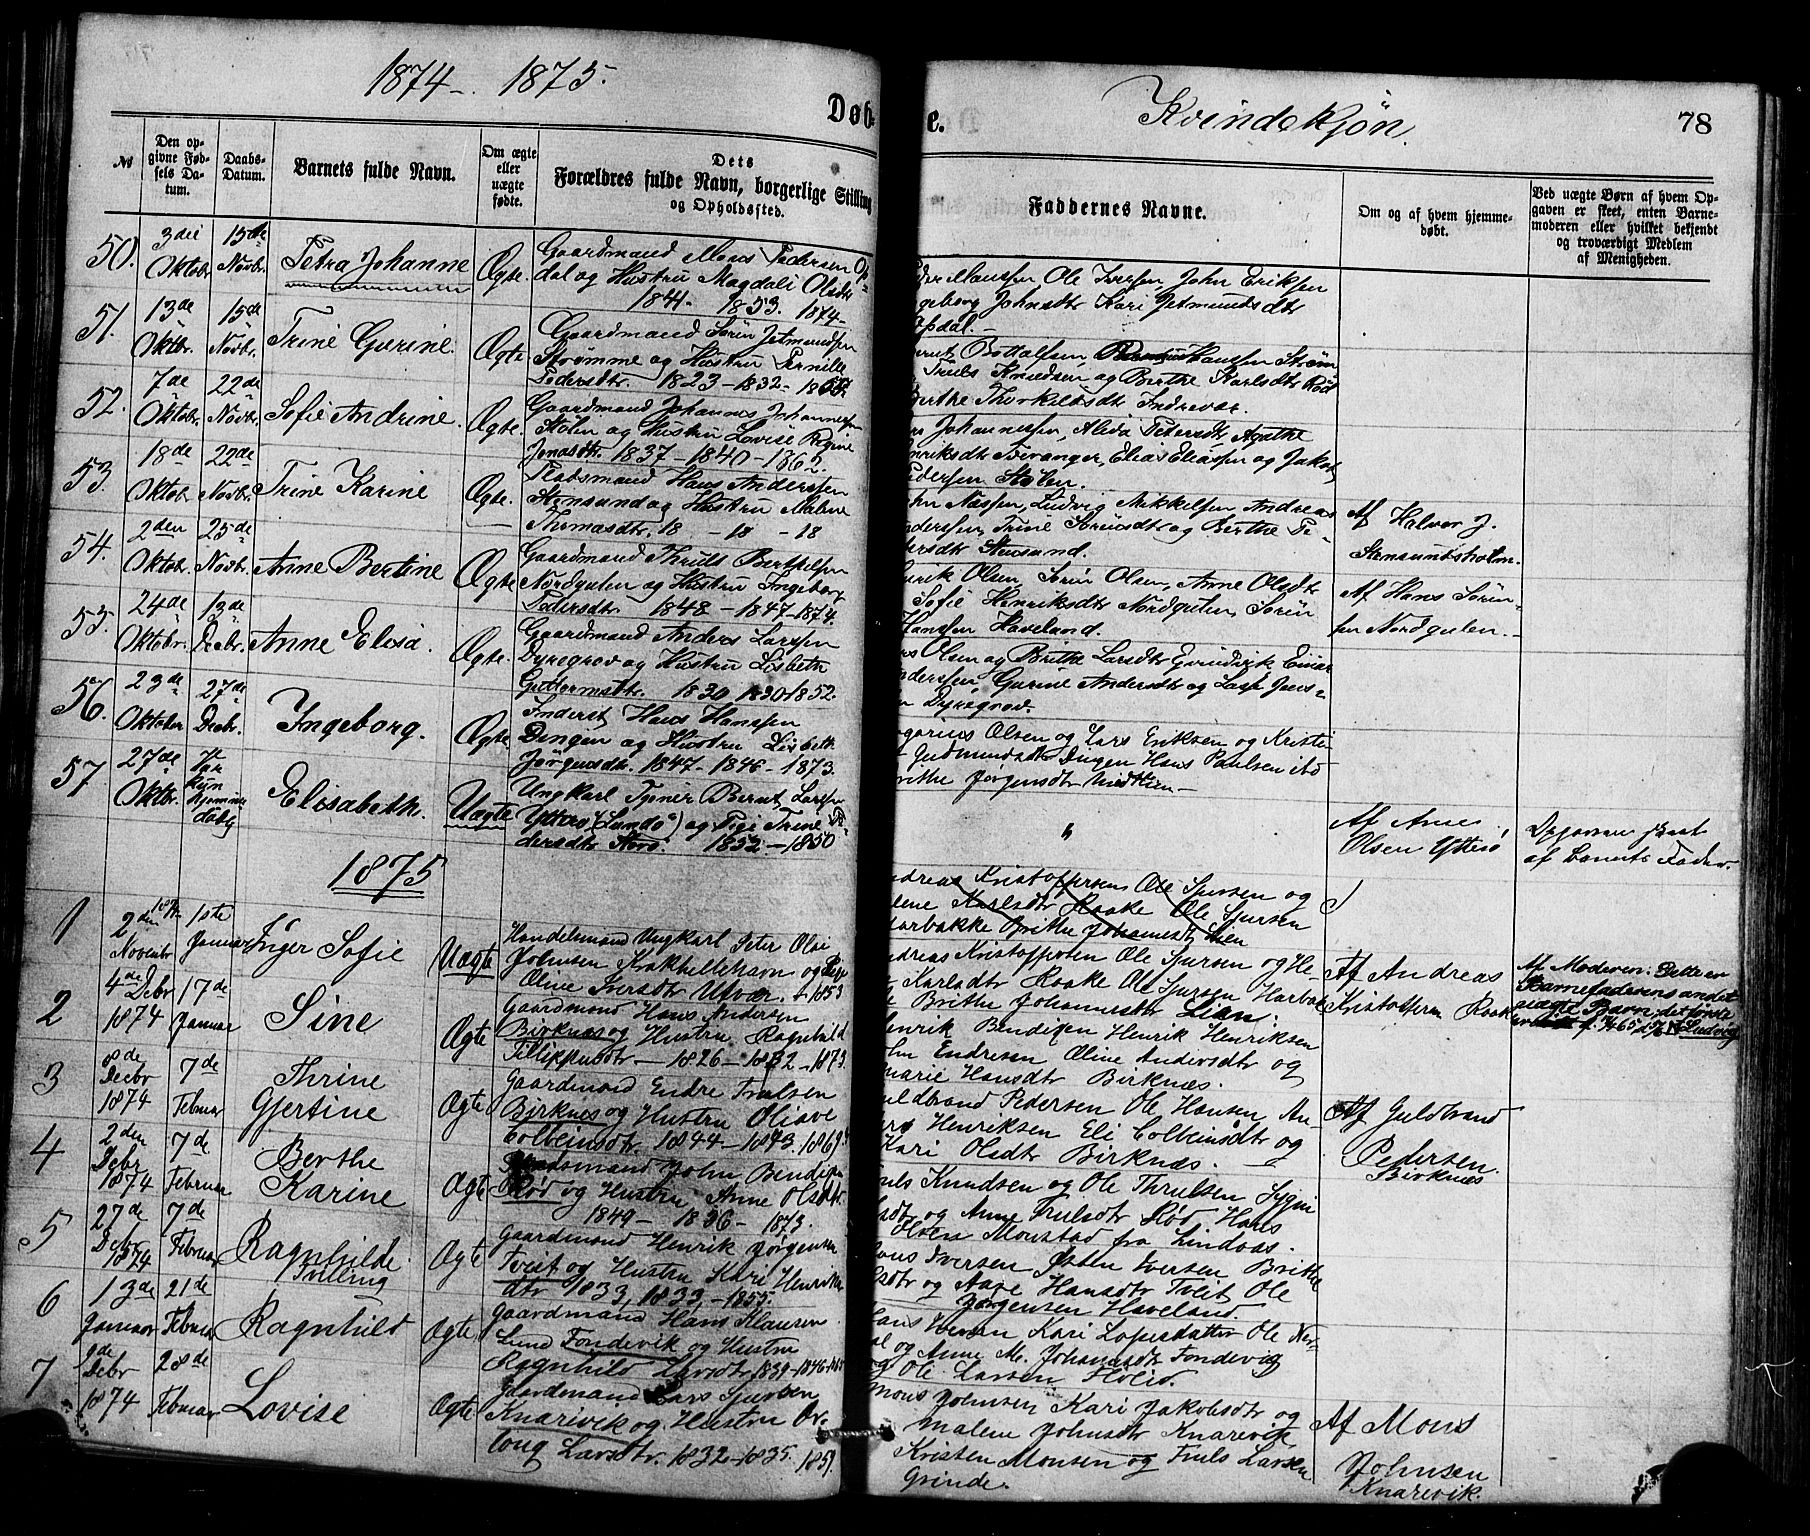 1874 - 1875.
Døb e. Kvindekjøn. 78
No
Den opgivne Fødsels Datum.
Daabs-Datum.
Barnets fulde Navn.
Om ægte eller uægte fødte.
Dets
Forældres fulde Navn, borgerlige Stilling
og Opholdssted.
Faddernes Navne.
Om og af hvem hjemmedøbt.
Ved uægte Børn af hvem Opgaven er skeet, enten Barnemoderen eller hvilket bekjendt og troværdigt Medlem af Menigheden.
50. 3die Oktobr. 15de Novbr. Petra Johanne Ægte.
Gaardmand Mons Pedersen Op-
dal og Hustru Magdali Olsdtr
1841 - 1853. 1874 -
Hansen Ole Iversen John Eriksen
Ingeborg Johnsdtr Kari Jetmundsdtr
Opdal. -
51. 13de Oktbr. 15de Novbr. Trine Gurine. Ægte
Gaardmand Sørin Jetmundsen
Strømme og Hustru Pernille
Pedersdtr. 1823 - 1832 -
Bottolfsen, Hansen Strøm
Truls Knudsen og Berthe Karlsdtr Rød
Berthe Thorkildsdtr Indrevær.
52. 7de Oktobr. 22de Novbr. Sofie Andrine. Ægte.
Gaardmand Johannes Johannessen
Stølen og Hustru Lovise Regine
Jonasdtr. 1837 - 1840 - 1862.
Johannessen, Alida Petersdtr Agathe
Henriksdtr Tveranger, Elias Eliassen og Jakob
Pedersen Stølen.
53. 18de Oktobr. 22de Novbr. Trine Karine Ægte.
Pladsmand Hans Anderssen
Stensund og Hustru Malene
Thomasdtr. 18 - 18 - 18
John Nassen, Ludvig Mikkelsen Andreas
Anderssen, Trine og Berthe Pe-
dersdtr Stensund.
Af Halvor J.
Stensundsholm.
54. 2den Oktobr. 25de Novbr. Anne Bertine Ægte
Gaardmand Thruls Berthelsen
Nordgulen og Hustru Ingeborg
Pedersdtr. 1848 - 1847 - 1874.
Henrik Olsen, Sørin Olsen, Anne Olsdtr
Sofie Henriksdtr Nordgulen, Sørin
Hansen Haveland.
Af Hans Sørin-
sen Nordgulen. -
55. 24de Oktobr. 13de Decbr. Anne Elisa. Ægte.
Gaardmand Anders Larssen
Dyregrov og Hustru Lisbeth
Guttormsdtr. 1830 1830 1852.
Olsen og Brithe Larsdtr Einar
Anderssen Gurine Andersdtr og Lasse Jens-
en Dyregrov.
56. 23de Oktober 27de Decbr. Ingeborg. Ægte
Inderst Hans Hanssen
Dingen og Hustru Lisbeth
Jørgensdtr. 1847 - 1846 - 1873.
Gregorius Olsen og Lars Eriksen og Kristi
Gudmundsdtr Dingen Hans Paulsen ibd
Brithe Jørgensdtr Midttun -
57 27de Oktbr. kun hjemmedøbt Elisabeth. Uægte
Ungkarl Tjener Bernt Larssen
Ytterø (Sandø) og Pige Trine Pe-
dersdtr 1852 - 1850
"
Af Arne
Olsen Ytterø
Opgaven
af Barnets Fader.
1875
1 2den Novembr 1874 1ste Januar Inger Sofie Uægte
Handelsmand Ungkarl Peter Olai
Johnsen Krakhellehavn og Pige
Oline Iversdtr Utvær. + 1853
Andreas Kristoffersen Ole Sjursen og
Karlsdtr Raake Ole Sjursen
Harbakke Brithe Johannesdtr Lien
Andreas Kristoffersen Ole Sjursen og He-
Karlsdtr Raake Ole Sjursen Harbak-
ke Brithe Johannesdtr Lien.
Af Andreas
Kristoffersen Raake
Af Moderen: Dette er
Barnefaderens andet
uægte Barn, det første
Ludvig
2 4de Decbr 1874 17de Januar Sine Ægte
Gaardmand Hans Andersen
Birknæs og Hustru Ragnhild
Fillippusdtr - 1826 - 1832 - 1873
Henrik Bendixen Henrik Henriksen
John Endresen Oline Andersdtr og
Marie Hansdtr Birknæs.
3 8de Decbr 1874 7de Februar Thrine Gjertine Ægte
Gaardmand Endre Trulsen
Birknæs og Hustru Oliave
Colbeinsdtr. 1844 - 1843. 1869
Guldbrand Pedersen Ole Hansen An-
ders Henriksen Eli Colbeinsdtr og
Kari Olsdtr Birknæs. -
Af Guldbrand
Pedersen
Birknæs
4 2den Decbr 1874 7de Februar Berthe Karine Ægte
Pladsmand John Bendixen
Rød og Hustru Anne Olsdtr
1849 - 1836 - 1873.
Truls Knudsen og Ole Thrulsen Sygn
og Anne Trulsdtr Rød Hans
Olsen Monstad fra Lindaas.
5 27de Decbr 1874 7de Februar Ragnhilde Tvilling Ægte
Gaardmand Henrik Jørgensen
Tveit og Hustru Kari Henriks
dtr 1833, 1833, - 1855.
Mons Iversen Østen Iversen Brithe
og Aase Hansdtr Tveit Ole
Jørgensen Haveland.
6 13de Januar 21de Februar Ragnhild Ægte
Gaardmand Hans Klausen
Lund Fondevik og Hustru
Ragnhild 1839 - 1846 -
Hans Kari Lassesdatter Ole
og Anne M. Johannesdtr Fondevig
og Ole Larsen
7 9de Decbr 1874 28de Februar Lovise Ægte
Gaardmand Lars Sjursen
Knarevik og Hustru
Larsdtr. 1832 - 1835. 1859.
Mons Johnsen Kari Jakobsdtr og
Malene Johnsdtr Knarevik
Kristen Monsen og Truls Larsen
Grinde.
Af Mons
Johnsen
Knarevik.